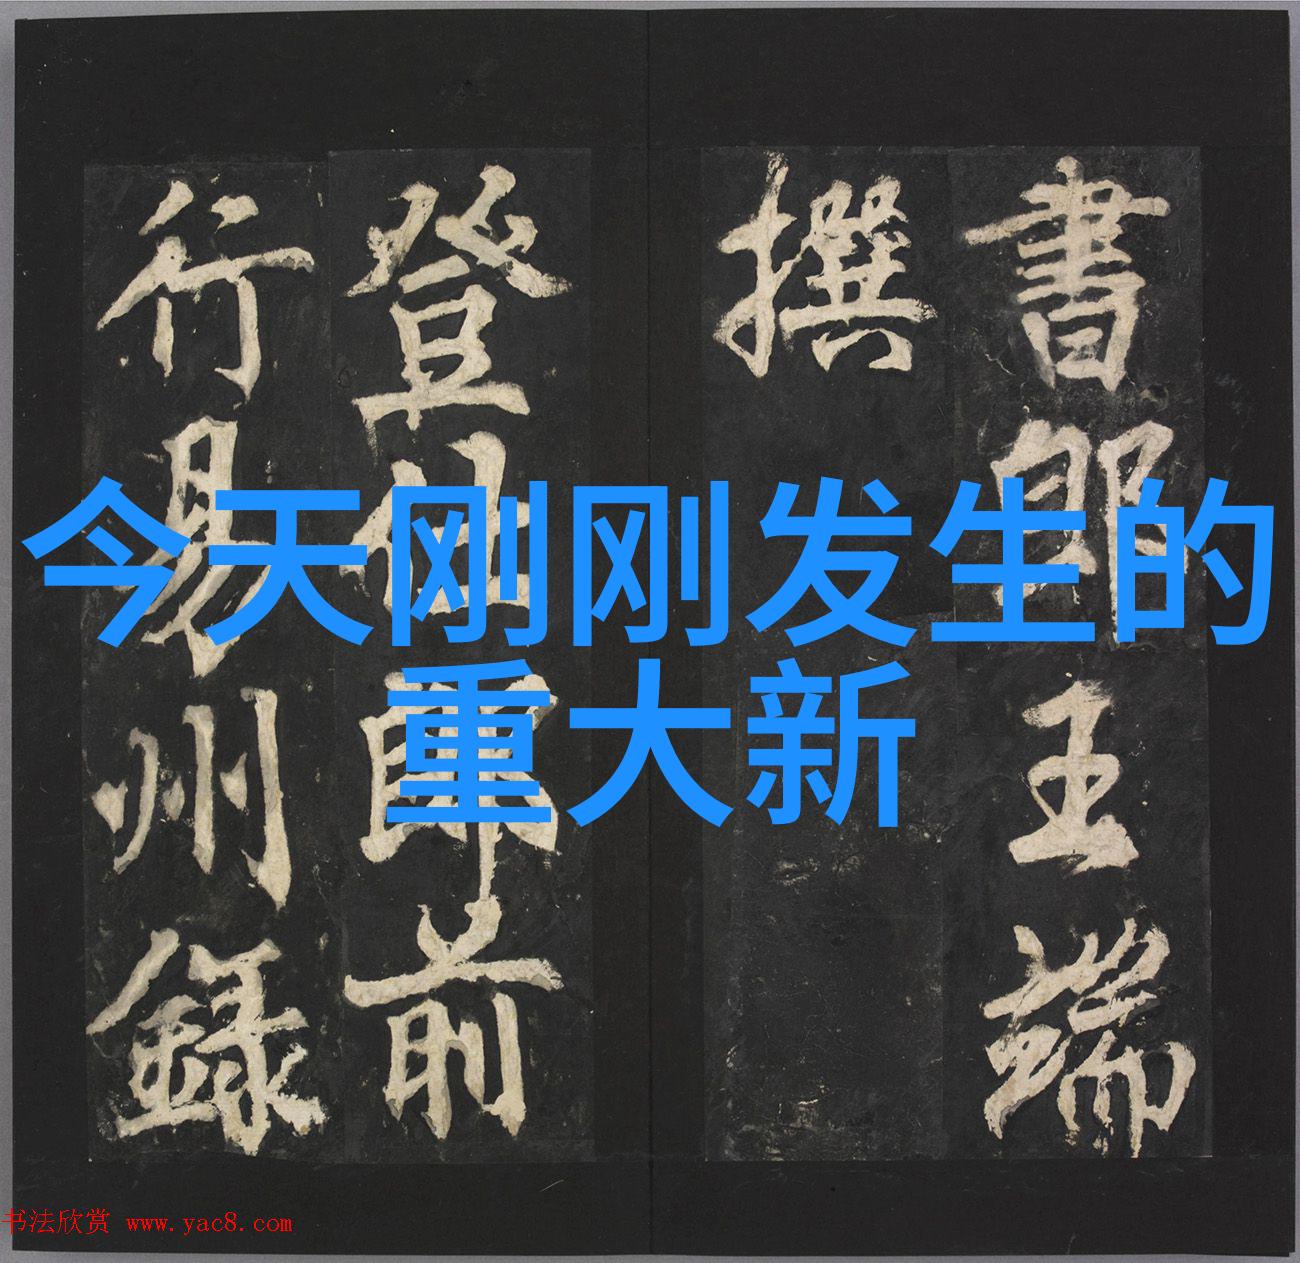 今天刚刚发生的
重大新
書郎王端
撰
登仕郎前
行易州録
书法欣赏 www.yac8.com